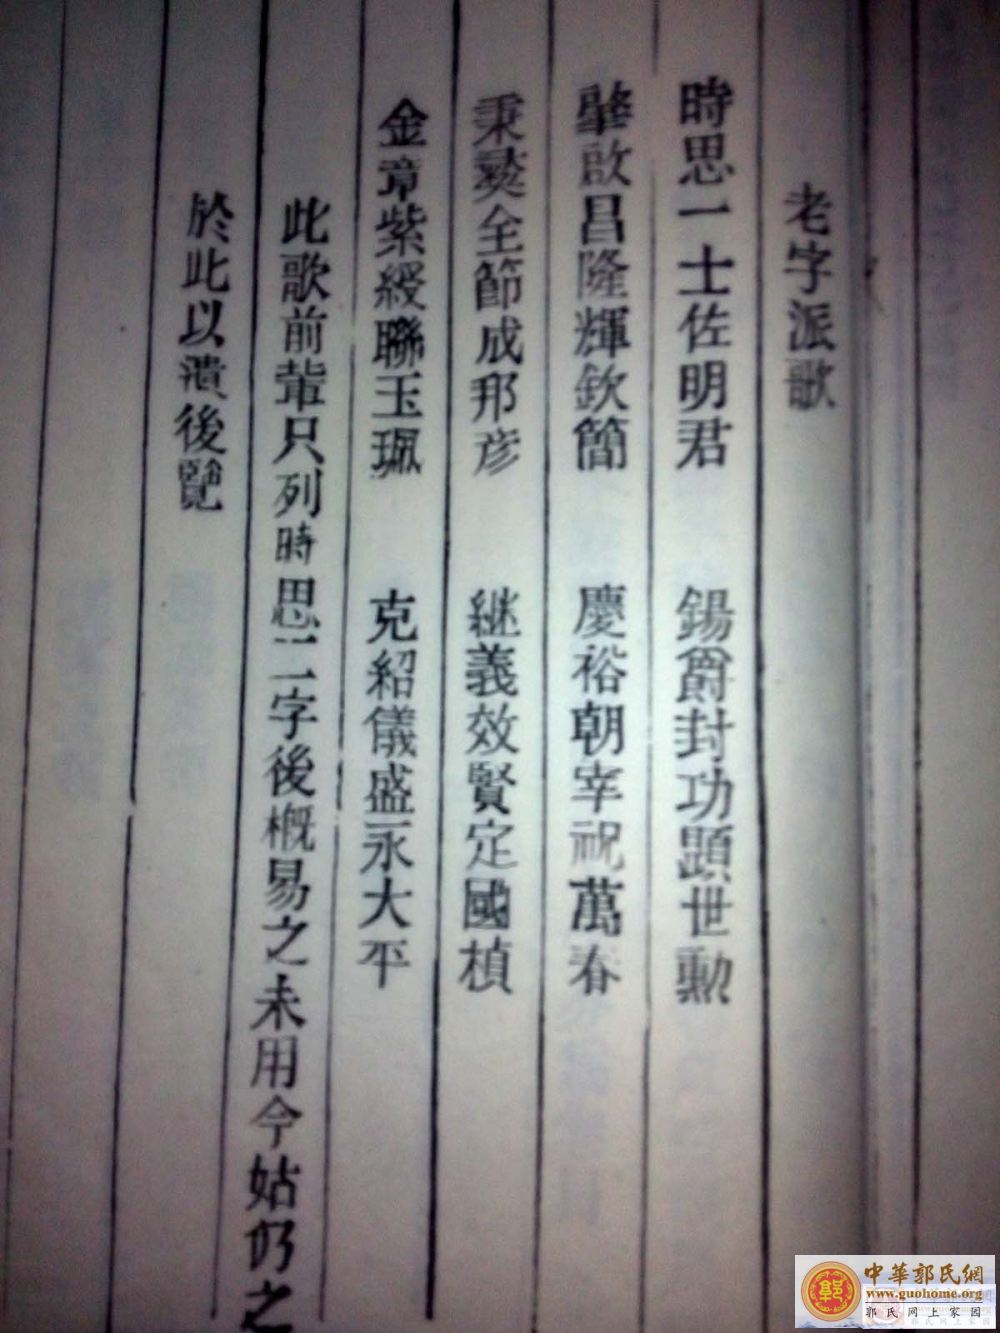 老字派歌
時思一士佐明君 錫爵封功顕世勲
肇啟昌隆輝欽簡 慶裕朝宰祝萬春
秉爕全節成邦彦 継義效賢定國楨
金章紫綬聯玉珮 克紹儀盛永大平
此歌前軰只列時思二字後概易之未用今姑仍之
於此以瀆後覽
中華郭氏網
www.guohome.org
郭氏网上家园